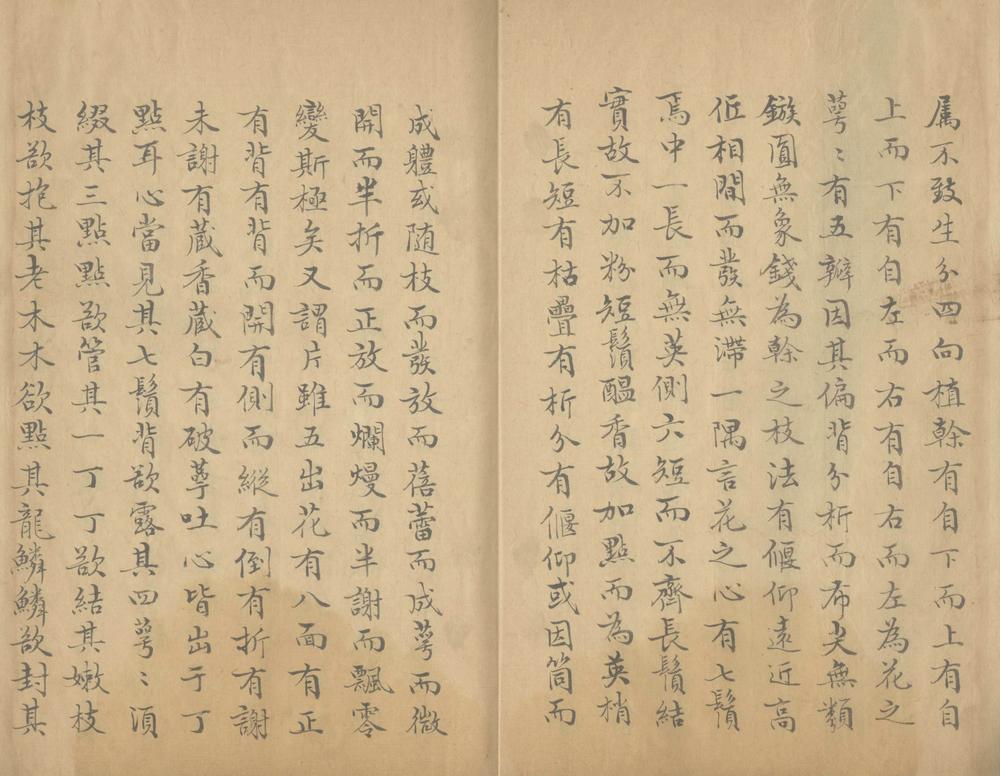 属不致生分四向植榦有自下而上有自
上而下有自左而右有自右而左為花之
萼〻有五瓣因其偏背分析而布尖無類
鏃圓無象錢為榦之枝法有偃仰遠近高
低相間而發無滯一隅言花之心有七鬚
焉中一長而無英側六短而不齊長鬚結
實故不加粉短鬚醖香故加點而為英梢
有長短有枯疊有析分有偃仰或因筒而
成體或随枝而發放而蓓蕾而成萼而微
開而半折而正放而爛熳而半謝而飄零
變斯極矣又謂片雖五出花有八面有正
有背有背而開有側而縱有倒有折有謝
未謝有蔵香蔵白有破萼吐心皆出于丁
點耳心當見其七鬚背欲露其四萼〻須
綴其三點點欲管其一丁丁欲結其嫩枝
枝欲抱其老木木欲點其龍鱗鱗欲封其